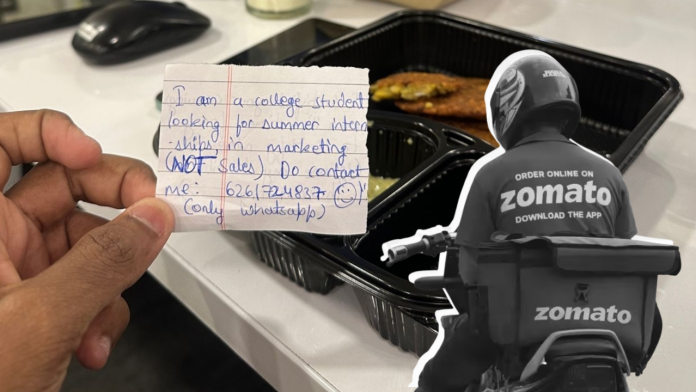 I am a college student
looking for summer intern
-ships in marketing
(NOT sales) Do contact
me: 6261724837 ☺
(only whatsapp)
ORDER ONLINE ON
zomato
DOWNLOAD THE APP
zomato